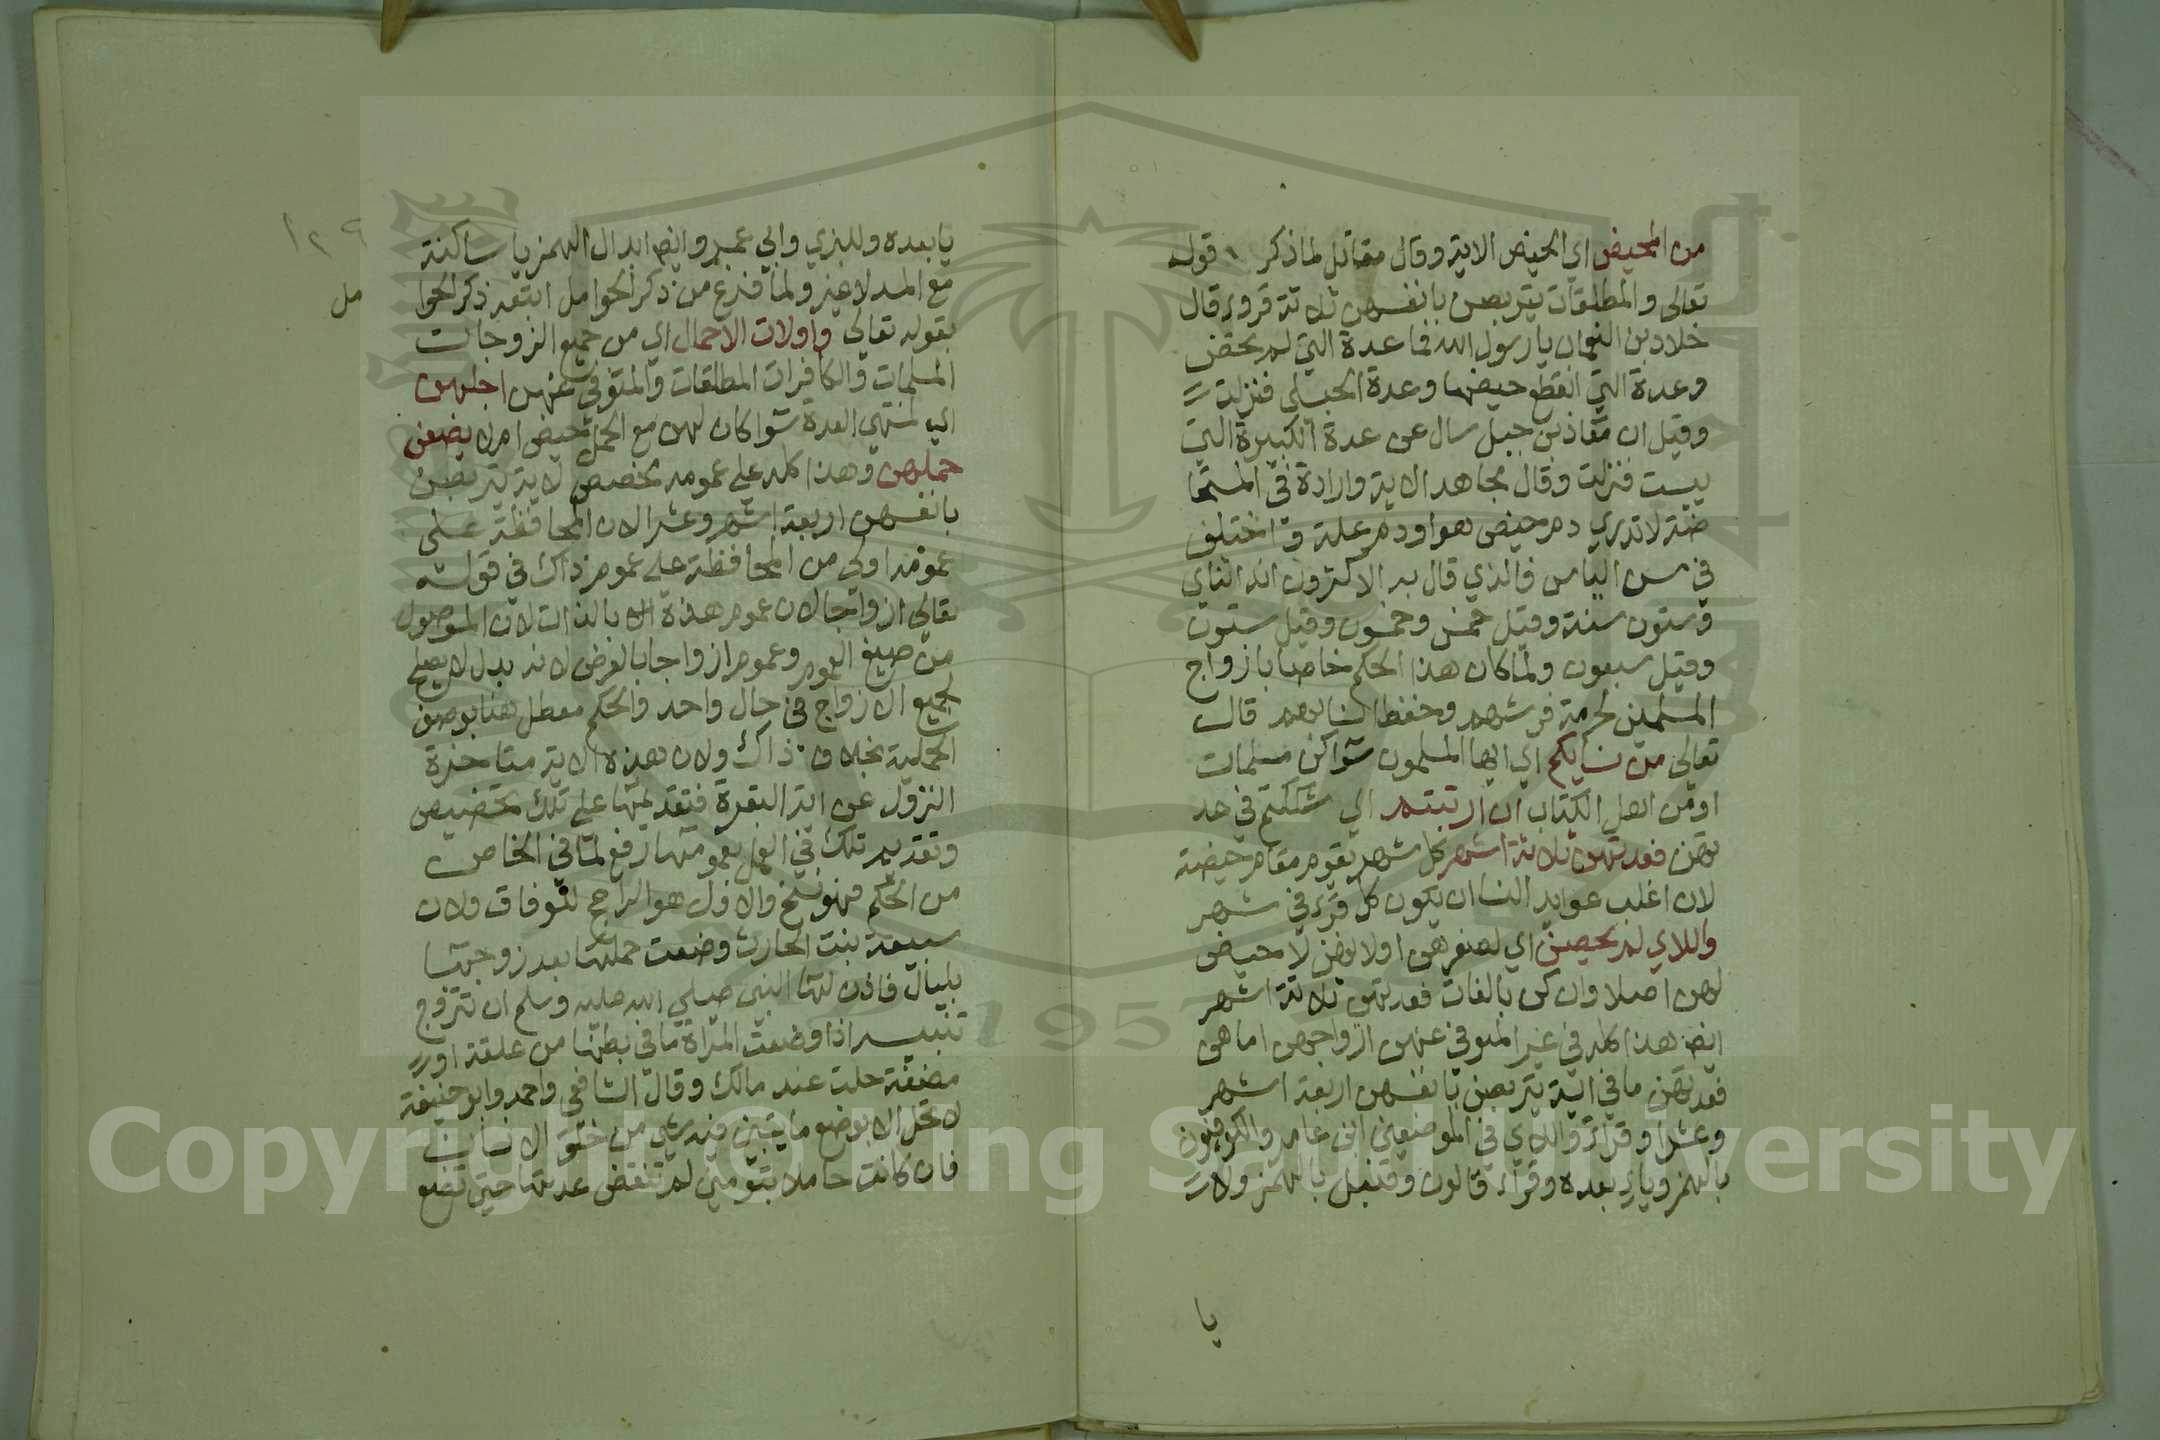 من المحيض اي الحيض الاية وقال مقاتل لما ذكر قوله
تعالى والمطلقات يتربصن بانفسهن ثلاثة قروء قال
خلاد بن النعمان يا رسول الله فما عدة التي لم تحض
وعدة التي انقطع حيضها وعدة الحبلى فنزلت
وقيل ان معاذ بن جبل سال عن عدة الكبيرة التي
ييست فنزلت وقال مجاهد الاية وارادة في المستحا
ضة لا تدري دم حيض هو او دم علة واختلف
في سن الياس فالذي قال به الاكثرون انه اثناي
وستون سنة وقيل خمس وخمسون وقيل ستون
وقيل سبعون ولما كان هذا الحكم خاصا بازواج
المسلمين لحرمة فرشهم وحفظ انسابهم قال
تعالى من نسايكم اي ايها المسلمون سوا كن مسلمات
او من اهل الكتاب ان ارتبتم اي شككتم في عد
تهن فعدتهن ثلاثة اشهر كل شهر يقوم مقام حيضة
لان اغلب عوايد النسا ان يكون كل قرء في شهر
واللاي لم يحضن اي لصغرهن او لانهن لا حيض
لهن اصلا وان كن بالغات فعدتهن ثلاثة اشهر
ايضا هذا كله في غير المتوفي عنهن ازواجهن اما هن
فعدتهن ما في اية يتربصن بانفسهن اربعة اشهر
وعشرا وقراء واللاي في الموضعين ابن عامر والكوفيون
بالهمز وياء بعده وقراء قالون وقنبل بالهمز ولا
يا
١٢٩
يا بعده وللبزي وابي عمرو ايضا ابدال الهمز يا ساكنة
مع المد لا غير ولما فرغ من ذكر الحوامل اتبعه ذكر الحوا
مل
بقوله تعالى واولات الاحمال اي من جميع الزوجات
المسلمات والكافرات المطلقات والمتوفي عنهن اجلهن
اي لمنتهي العدة سوا كان لهن مع الحمل حيض ام لا يضعن
حملهن وهذا كله على عمومه مخصص لاية يتربصن
بانفسهن اربعة اشهر وعشرا لان المحافظة على
عمومه اولى من المحافظة على عموم ذاك في قوله
تعالى ازواجا لان عموم هذه الا بالذات لان الموصول
من صيغ العموم وعموم ازواجا بالعرض لانه بدل لا يصلح
لجميع الازواج في حال واحد والحكم معطل هنا بوصف
الحملية بخلاف ذاك ولان هذه الاية متاخرة
النزول عن اية البقرة فتقديمها على تلك تخصيص
وتقديم تلك في العمل بعمومها رفع لما في الخاص
من الحكم فهو نسخ والاول هو الراجح للوفاق ولان
سبيعة بنت الحارث وضعت حملها بعد زوجها
بليال فاذن لها النبي صلي الله عليه وسلم ان تتزوج
تنبيه اذا وضعت المراة ما في بطنها من علقة او
مضغة حلت عند مالك وقال الشافعي واحمد وابو حنيفة
لا تحل الا بوضع ما يتبين فيه شي من خلق الانسان
فان كانت حاملا بتومين لم تنقض عدتها حتى تضع
1957
Copyright © King Saud University